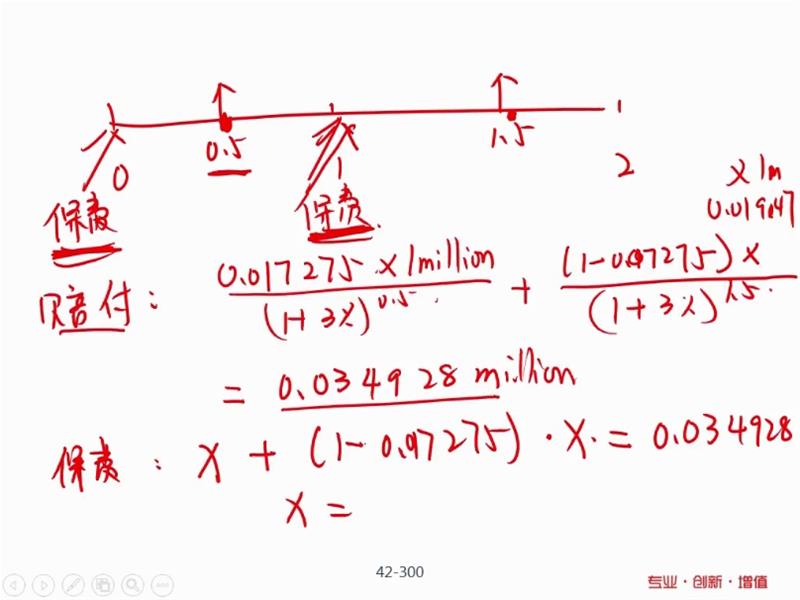 0 0.5 1 1.5 2
保费 保费
× 1m
0.019047
赔付: 0.017275 × 1million / (1+3%)^0.5 + (1-0.017275) × / (1+3%)^1.5
= 0.034928 million
保费: x + (1-0.017275) · x = 0.034928
x =
42-300
专业·创新·增值